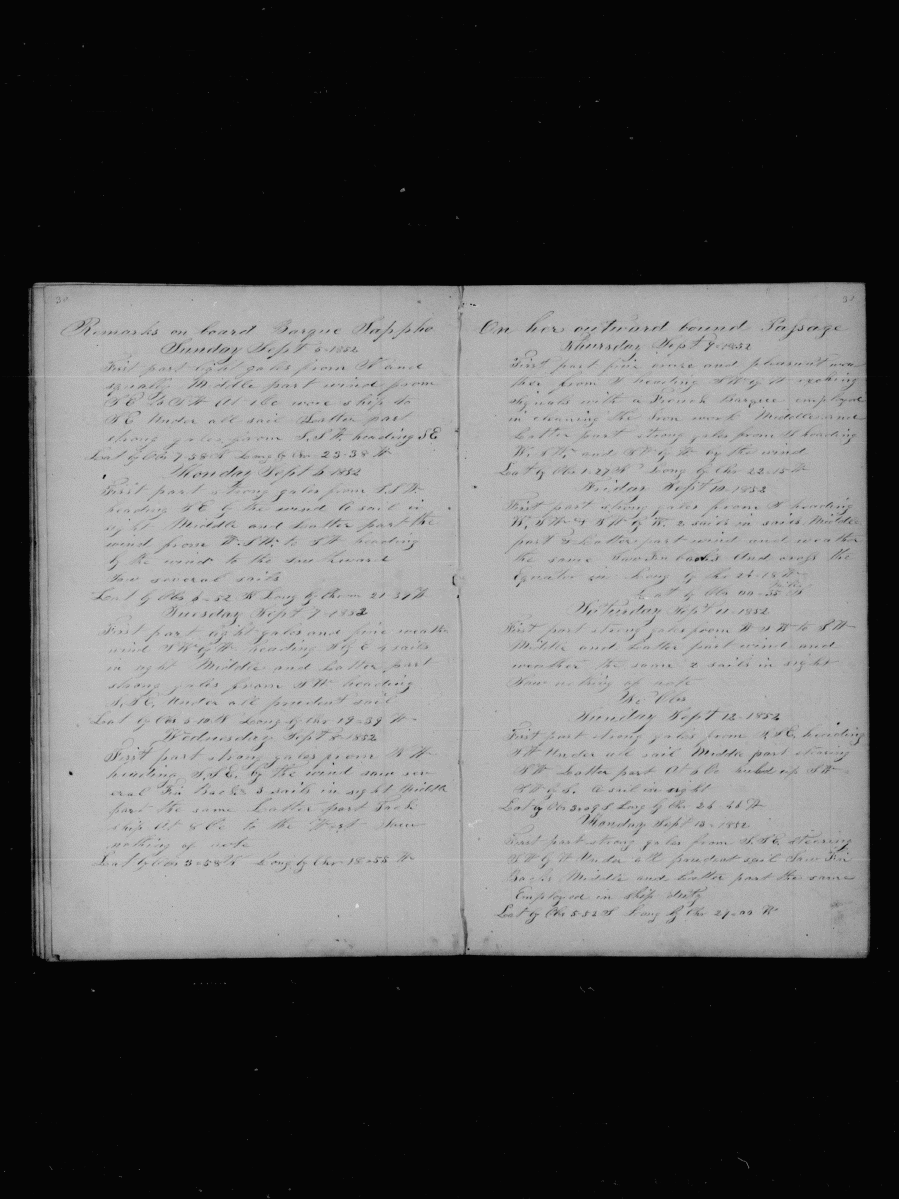 30
Remarks on board Barque Sappho
Sunday Sept 5-1852
First part light gales from and
squally Middle part wind from
to At wore ship to
Under all sail Latter part
strong gales from S.S.W. heading SE
Lat by Obs 7-58 N Long by Chr 23-38 W
Monday Sept 6-1852
First part strong gales from S.S.W.
heading by the wind A sail in
sight Middle and Latter part the
wind from to S W heading
by the wind to the
Saw several sails
Lat by Obs 6-52 N Long by Chrom 21-37 W
Tuesday Sept 7-1852
First part light gales and fine weath
wind S W by W heading 4 sails
in sight Middle and Latter part
strong gales from S W heading
S.S.E. Under all prudent sail
Lat by Obs 5-10 N Long by Chr 19-39 W
Wednesday Sept 8-1852
First part strong gales from S W
heading S.S.E. by the wind saw sev
eral Fin Backs 3 sails in sight Middle
part the same Latter part Tack
ship At 8 Oc to the West Saw
nothing of note
Lat by Obs 3-58 N Long by Chr 18-55 W
31
On her outward bound Passage
Thursday Sept 9-1852
First part fine and pleasant wea-
ther from S heading S W by W
Signals with a French Barque employed
in cleaning the work Middle and
Latter part strong gales from S heading
W. S W. and S W by W by the wind
Lat by Obs 1-27 N Long by Chr 22-15 W
Friday Sept 10-1852
First part strong gales from S heading
W. S W & S W by W. 2 sails in Middle
part & Latter part wind and weather
the same backs And cross the
Equator in Long by Chr
Lat by Obs 00-55
Saturday Sept 11-1852
First part strong gales from to
Middle and Latter part wind and
weather the same 2 sails in sight
Saw nothing of note
No Obs
Sunday Sept 12-1852
First part strong gales from S.S.E. heading
S W Under all sail Middle part steering
S W Latter part At 6 Oc up S W
S W by S. A sail in sight
Lat by Obs 3-09 S Long by Chr
Monday Sept 13-1852
First part strong gales from S.S.E. steering
S W by W Under all prudent sail Saw Fin
Backs Middle and Latter part the same
Employed in Ship duty
Lat by Obs 5-52 S Long by Chr 29-00 W